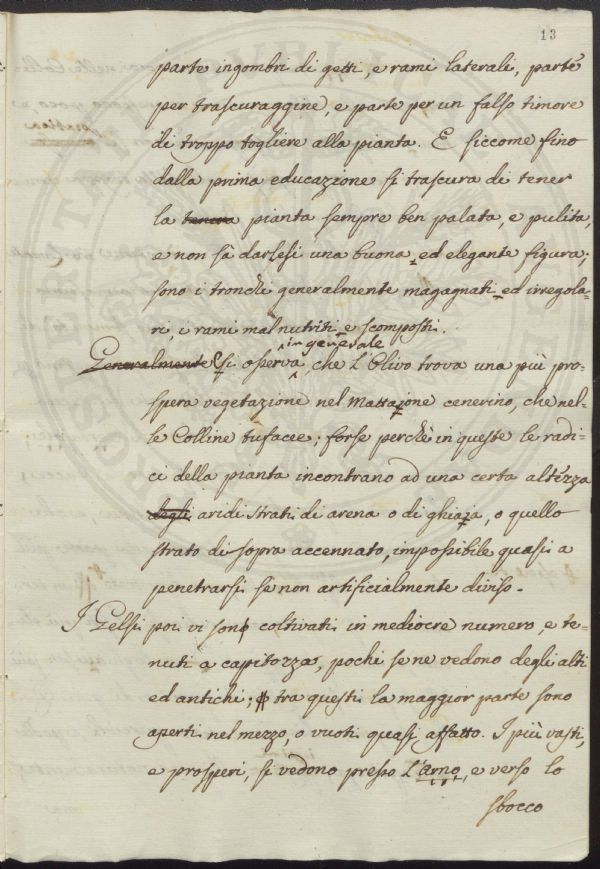 13
parte ingombri di getti, e rami laterali, parte
per trascuraggine, e parte per un falso timore
di troppo togliere alla pianta. E siccome fino
dalla prima educazione si trascura di tener
la tenera pianta sempre ben palata, e pulita,
e non sà darlesi una buona, ed elegante figura;
sono i tronchi generalmente magagnati, ed irregola-
ri, i rami mal nutriti, e scomposti.
Generalmente Si osserva in generale, che l'Olivo trova una più pro-
spera vegetazione nel Mattajone cenerino, che nel-
le Colline tufacee; forse perchè in queste le radi-
ci della pianta incontrano ad una certa altezza
degli aridi strati di arena o di ghiaja, o quello
strato di sopra accennato, impossibile quasi a
penetrarsi se non artificialmente diviso.
I Gelsi poi vi sono coltivati in mediocre numero, e te-
nuti a capitozza, pochi se ne vedono degli alti
ed antichi; tra questi la maggior parte sono
aperti nel mezzo, o vuoti quasi affatto. I più vasti,
e prosperi, si vedono presso l'Arno, e verso lo
sbocco